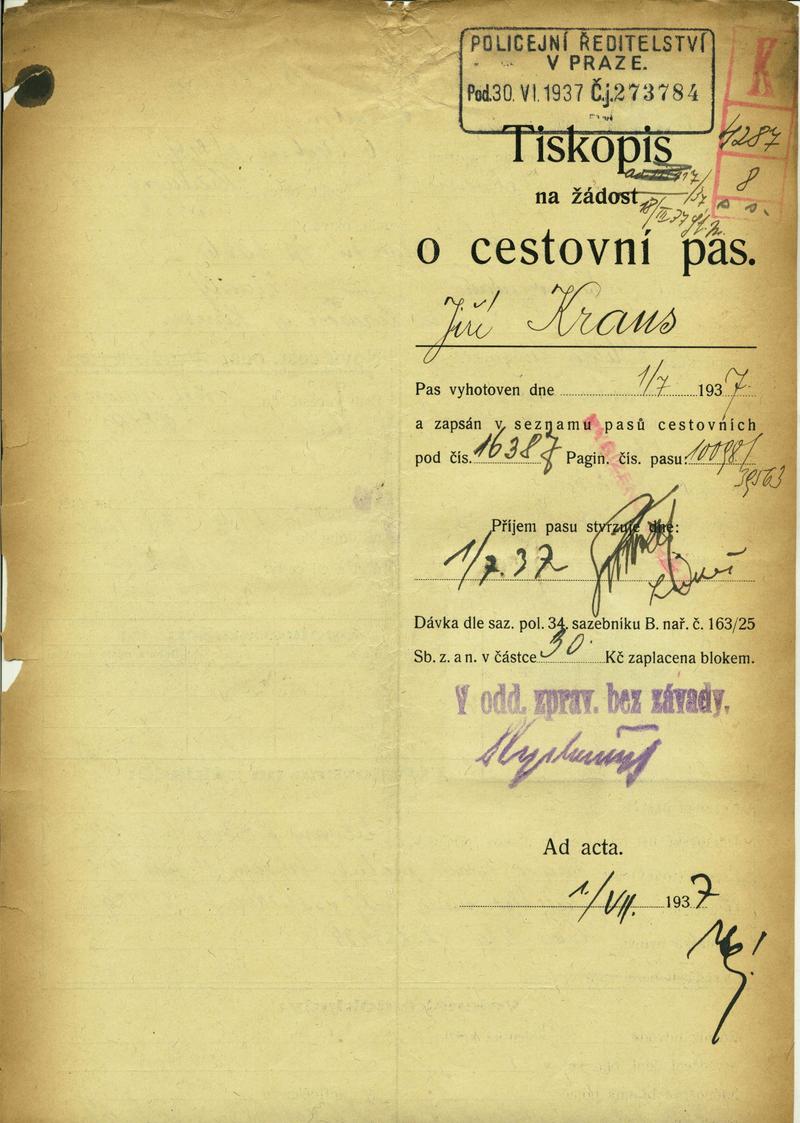 POLICEJNÍ ŘEDITELSTVÍ
V PRAZE.
Pod. 30. VI. 1937 Č.j. 273784
K
4287
8
s s.
Tiskopis
na žádost
o cestovní pas.
Jiří Kraus
Pas vyhotoven dne 1/7 1937.
a zapsán v seznamu pasů cestovních
pod čís. 16387 Pagin. čís. pasu: 10098/
39563
Příjem pasu stvrzuje dne:
1/7.37
Dávka dle saz. pol. 34. sazebníku B. nař. č. 163/25
Sb. z. a n. v částce 30 Kč zaplacena blokem.
V odd. zprav. bez závady.
Ad acta.
1./VII. 1937